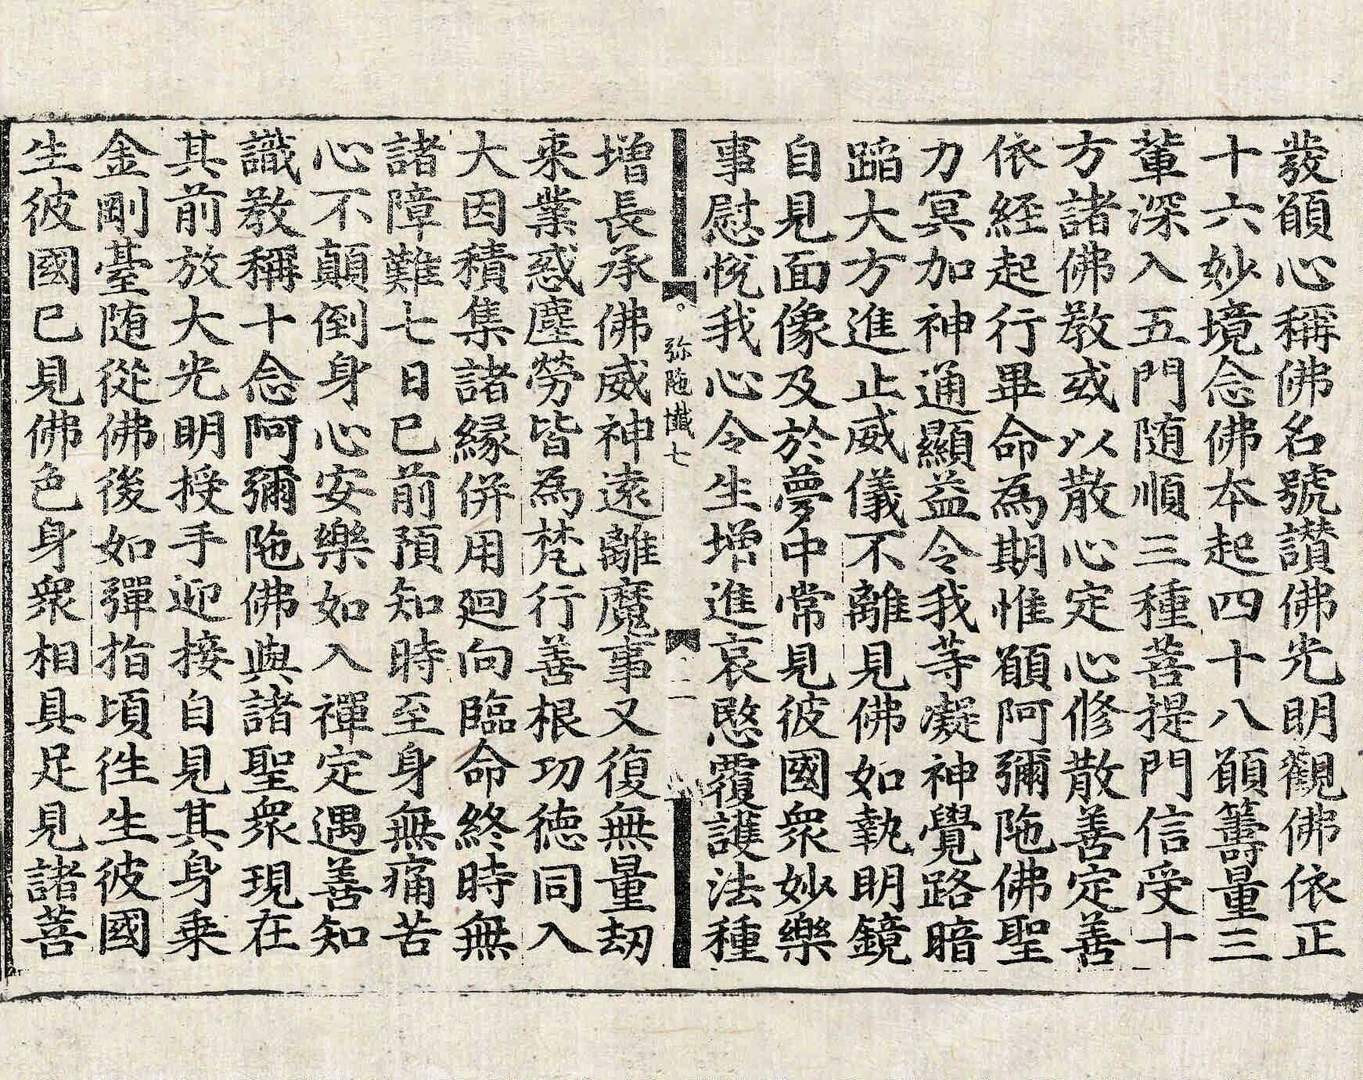 發願心稱佛名號讃佛光明觀佛依正
十六妙境念佛本起四十八願籌量三
軰深入五門随順三種菩提門信受十
方諸佛敎或以散心定心修散善定善
依經起行畢命為期惟願阿彌陁佛聖
力冥加神通顯益令我等凝神覺路暗
蹈大方進止威儀不離見佛如執明鏡
自見面像及於夢中常見彼國衆妙樂
事慰悅我心令生增進哀愍覆護法種
弥陁懺七
二
增長承佛威神遠離魔事又復無量劫
来業惑塵勞皆為梵行善根功德同入
大因積集諸緣併用廻向臨命終時無
諸障難七日已前預知時至身無痛苦
心不顛倒身心安樂如入禪定遇善知
識敎稱十念阿彌陁佛與諸聖衆現在
其前放大光明授手迎接自見其身乗
金剛臺随從佛後如彈指頃徃生彼國
生彼國已見佛色身衆相具足見諸菩